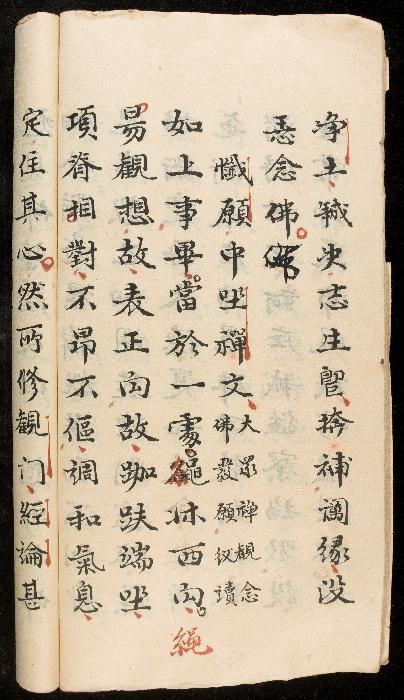 净土史志生捺補緣没
念佛佛
懺願中坐禪文
大眾禪觀念
佛發願仪讀
如上事畢當於一處繩床西向
繩
易觀想故表正向故跏趺端坐
項脊相對不昂不傴調和氣息
定住其心然所修觀门經論甚